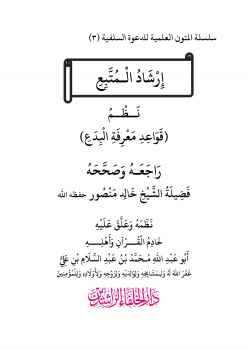 سلسلة المتون العلمية للدعوة السلفية (٣)
إِرْشَادُ الْمُتَّبِعِ
نَظْمُ
(قَوَاعِدِ مَعْرِفَةِ الْبِدَعِ)
رَاجَعَهُ وَصَحَّحَهُ
فَضِيلَةُ الشَّيْخِ خَالِد مَنْصُور حفظه الله
نَظَمَهُ وَعَلَّقَ عَلَيْهِ
خَادِمُ الْقُرْآنِ وَأَهْلِهِ
أَبُو عَبْدِ اللهِ مُحَمَّدُ بْنُ عَبْدِ السَّلَامِ بْنِ عَلِيٍّ
غَفَرَ اللهُ لَهُ وَلِمَشَايِخِهِ وَلِوَالِدَيْهِ وَلِزَوْجِهِ وَلِأَوْلَادِهِ وَلِلْمُؤْمِنِينَ
دار الخلفاء الراشدين